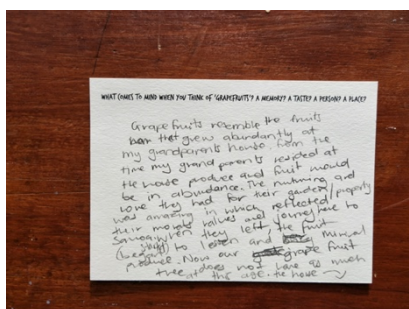 WHAT COMES TO MIND WHEN YOU THINK OF 'GRAPEFRUITS'? A MEMORY? A TASTE? A PERSON? A PLACE?
Grapefruits resemble the fruits
that grew abundantly at
my grandparents house. From the
time my grandparents resided at
the house produce and fruit would
be in abundance. The nurturing and
love they had for their garden/property
was amazing in which reflected
their morals values and journey to
Samoa. When they left, the fruit
(began) to lessen and minimal
produce. Now our grape fruit
tree does not have as much
at this age. the house